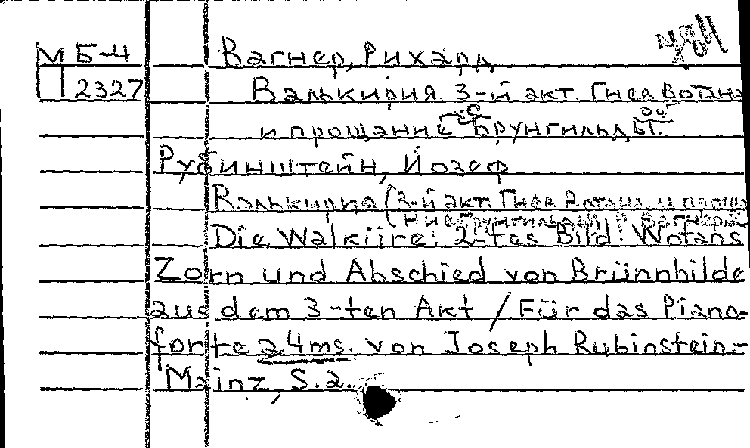 М Б-4
П 2327
784
Вагнер, Рихард
Валькирия 3-й акт Гнев Вотана
и прощание с Брунгильдой.
Рубинштейн, Йозеф
Валькирия (3-й акт. Гнев Вотана и
Die Walküre: 2-tes Bild: Wotans
Zorn und Abschied von Brünnhilde
aus dem 3-ten Akt / Für das Piano-
forte a 4ms. von Joseph Rubinstein.-
Mainz, S.a.